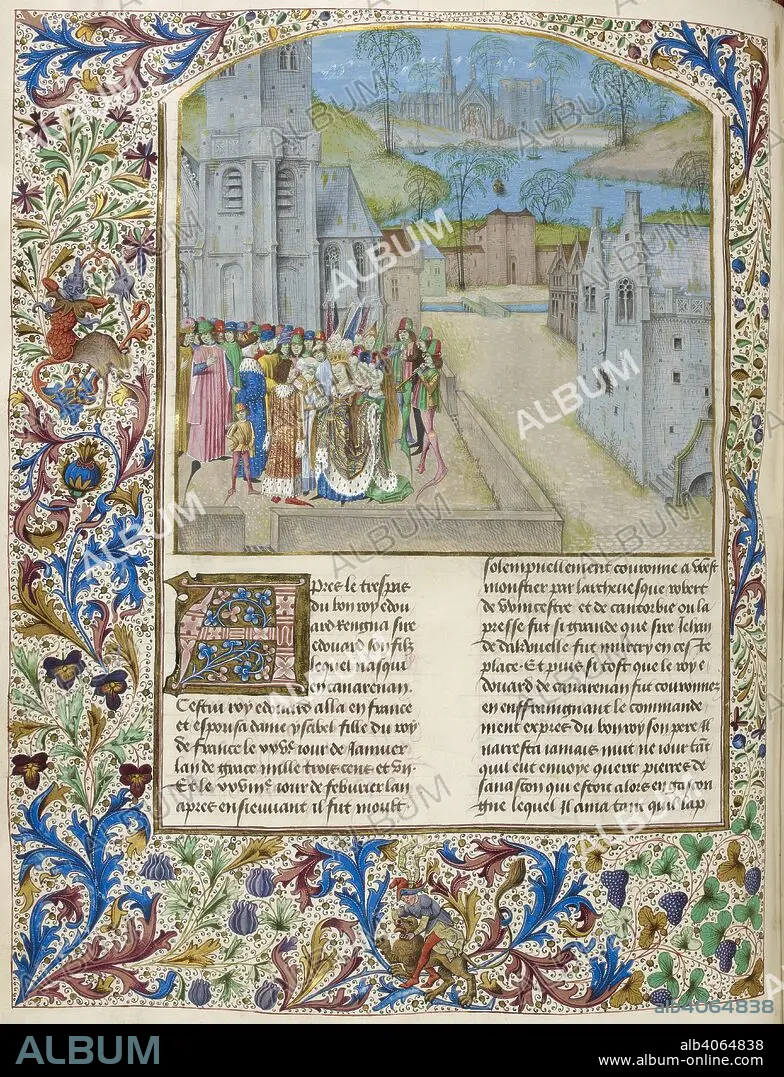 Apres le trespas
du bon roy edou
ard Rengna sire
edouard son filz
lequel nasqui
en canarenan.
Cestui roy edouard alla en france
et espousa dame ysabel fille du roy
de france le
iour de Januier
lan de grace mille trois cens et
Et le
iour de feburier lan
apres ensieuuant il fut moult
solempnellement couronne a west
moustier par larcheuesque robert
de vvincestre et de cantorbie ou la
presse fut si grande que sire iehan
de
fut murtry en ceste
place. Et puis si tost que le roy e
douard de canarenan fut couronnez
en enffraingnant le commande
ment expres du bon roy son pere Il
narresta iamais nuit ne iour tāt
quil eut enuoye querir pierres de
Gauascon qui estoit alors en Gascon
gne lequel Il ama tant quil lap
ALBUM
ALBUM
ALBUM
ALBUM
ALBUM
ALBUM
ALBUM
ALBUM
alb4064838
ALBUM
alb4064838
www.album-online.com